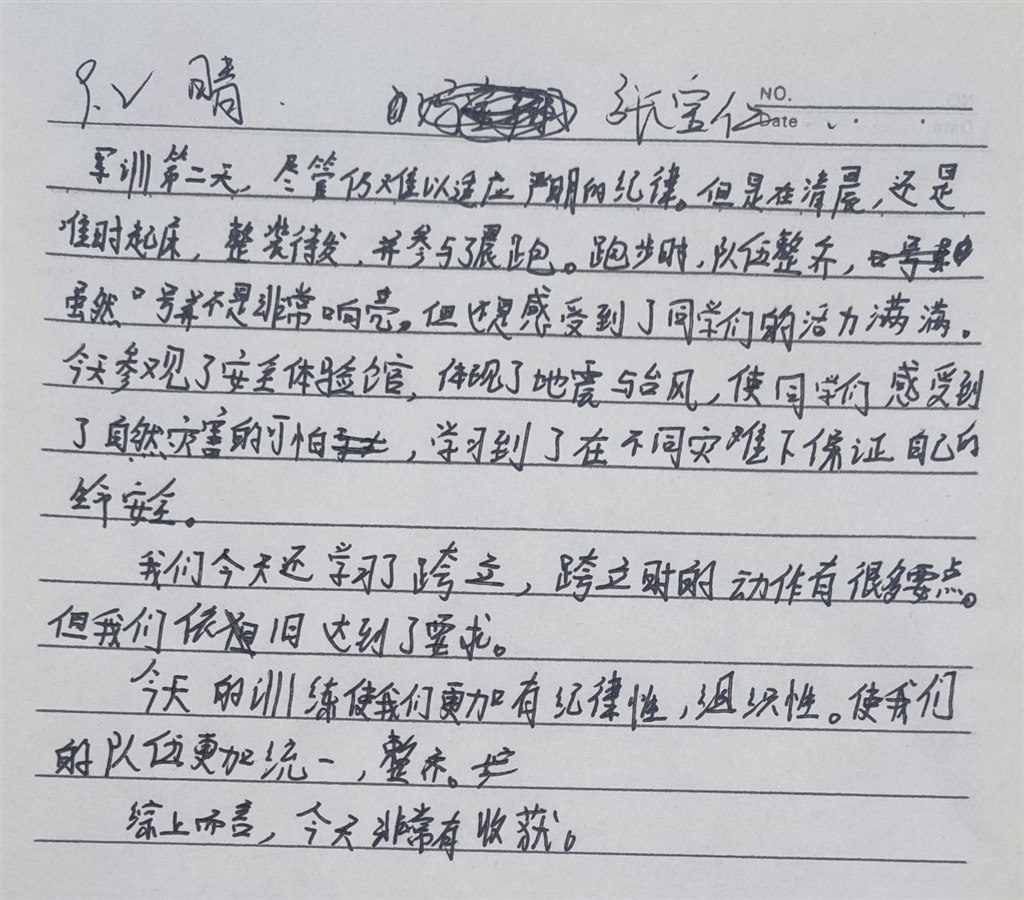 9.2 晴. 张宝仁 NO.
Date
军训第二天，尽管仍难以适应严明的纪律。但是在清晨，还是
准时起床，整装待发，并参与了晨跑。跑步时，队伍整齐，
虽然口号并不是非常响亮。但还是感受到了同学们的活力满满。
今天参观了安全体验馆，体现了地震与台风，使同学们感受到
了自然灾害的可怕，学习到了在不同灾难下保证自己的
生命安全。
我们今天还学习了跨立，跨立时的动作有很多要点。
但我们依旧达到了要求。
今天的训练使我们更加有纪律性，组织性。使我们
的队伍更加统一，整齐。
综上而言，今天非常有收获。